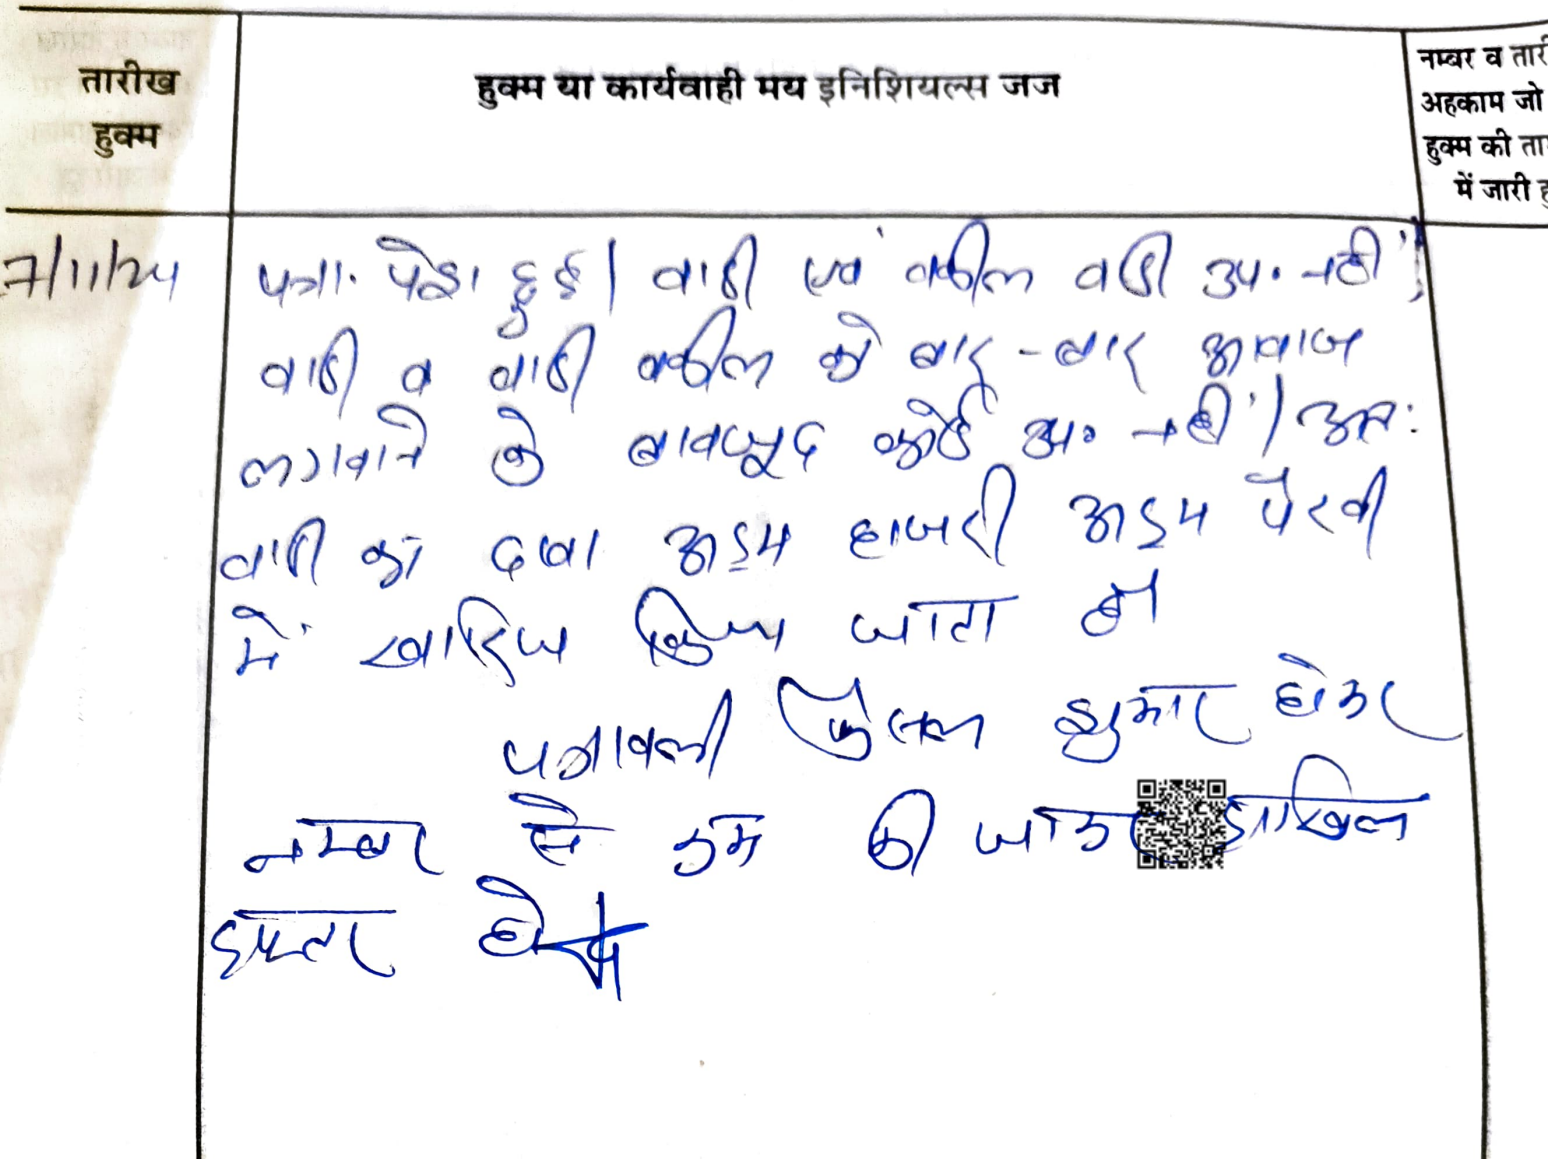 तारीख
हुक्म
हुक्म या कार्यवाही मय इनिशियल्स जज
नम्बर व तारी
अहकाम जो
हुक्म की ता
में जारी हु
7/11/24 पत्रा. पेश हुई। वादी एवं वकील वादी उप. नहीं।
वादी व वादी वकील को बार-बार आवाज
लगवाने के बावजूद कोई उप. नहीं। अतः
वादी का दावा अदम हाजरी अदम पैरवी
में खारिज किया जाता है।
पत्रावली फैसल शुमार होकर
नम्बर से कम की जाकर दाखिल
दफ्तर हो